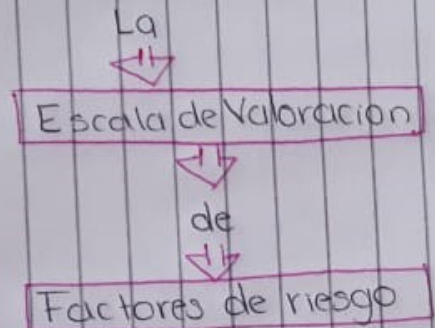 La
Escala de Valoracion
de
Factores de riesgo